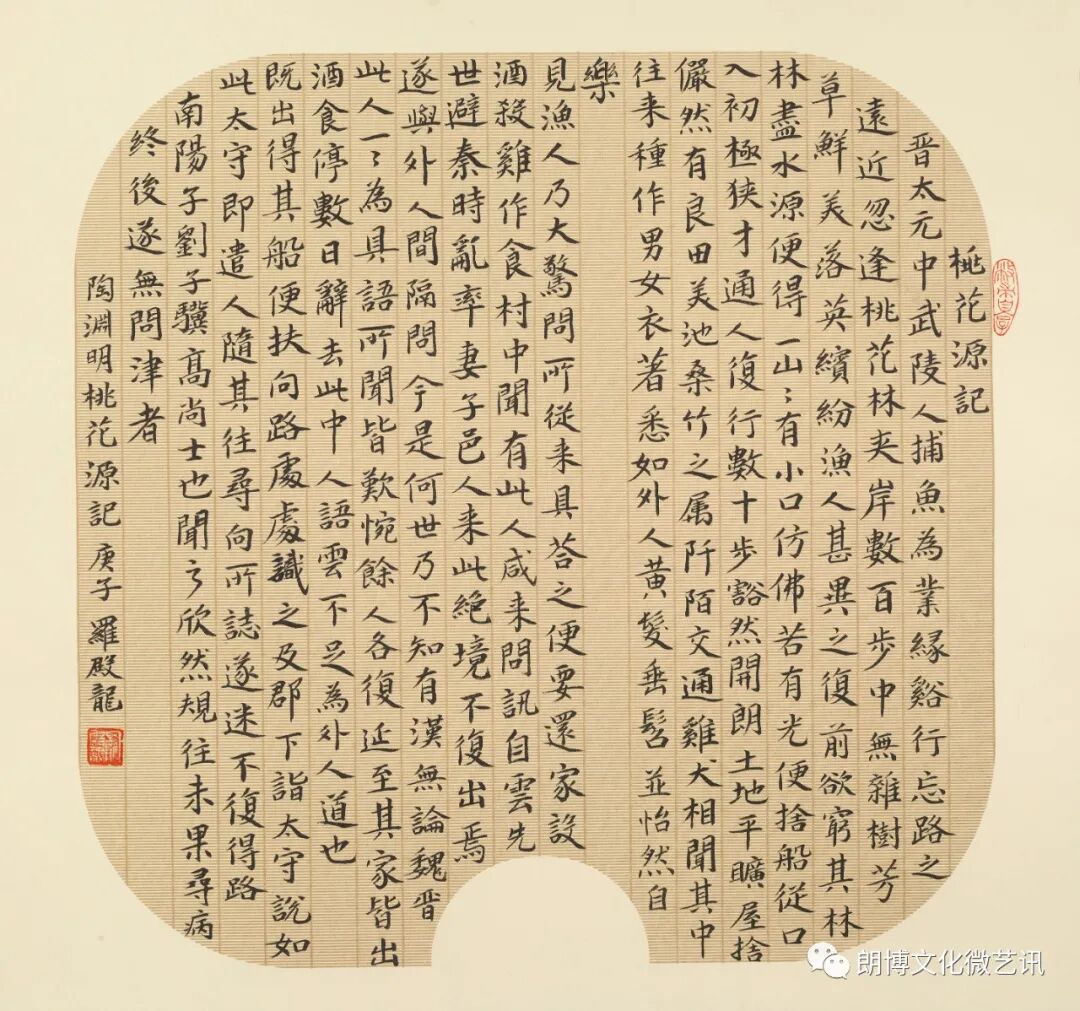 桃花源記
晋太元中武陵人捕魚為業緣谿行忘路之
遠近忽逢桃花林夹岸數百步中無雜樹芳
草鮮美落英繽紛漁人甚異之復前欲窮其林
林盡水源便得一山〻有小口仿佛若有光便捨船従口
入初極狭才通人復行數十步豁然開朗土地平曠屋捨
儼然有良田美池桑竹之属阡陌交通雞犬相聞其中
往来種作男女衣著悉如外人黄髮垂髫並怡然自
樂
見漁人乃大驚問所従来具荅之便要還家設
酒殺雞作食村中聞有此人咸来問訊自雲先
世避秦時亂率妻子邑人来此絶境不復出焉
遂與外人間隔問今是何世乃不知有漢無論魏晋
此人一〻為具語所聞皆歎惋餘人各復延至其家皆出
酒食停數日辭去此中人語雲不足為外人道也
既出得其船便扶向路處處識之及郡下詣太守說如
此太守即遣人隨其往尋向所誌遂迷不復得路
南陽子劉子驥高尚士也聞之欣然規往未果尋病
終後遂無問津者
陶淵明桃花源記庚子羅殿龍
朗博文化微艺讯